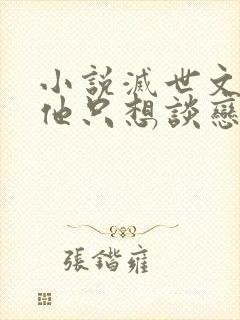 小說滅世文
他只想談戀
張鍇雍